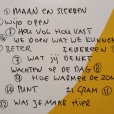 MAAN EN STERREN
WIJD OPEN
HOU VOL HOU VAST
WE DOEN WAT WE KUNNEN
BETER IEDEREEN
WAT JIJ DENKT
WACHTEN OP DE DAG
HOE WARMER DE ZON
PUNT 21 GRAM
WAS JE MAAR HIER